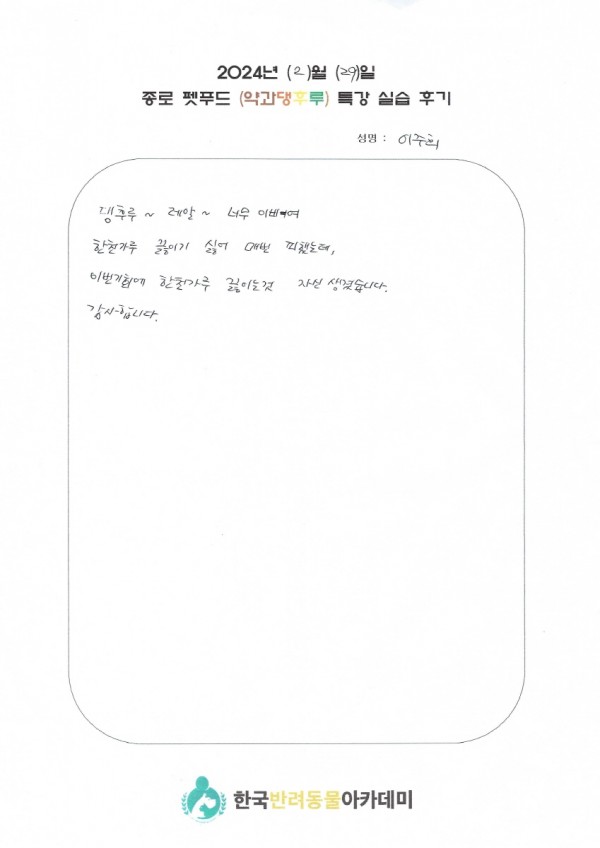 2024년 (2)월 (29)일
종로 펫푸드 (약과댕후루) 특강 실습 후기
성명 : 이주희
댕후루~ 레알~ 너무 이뻐여
한천가루 끓이기 싫어 매번 피했는데,
이번기회에 한천가루 끓이는것 자신 생겼습니다.
감사합니다.
한국반려동물아카데미